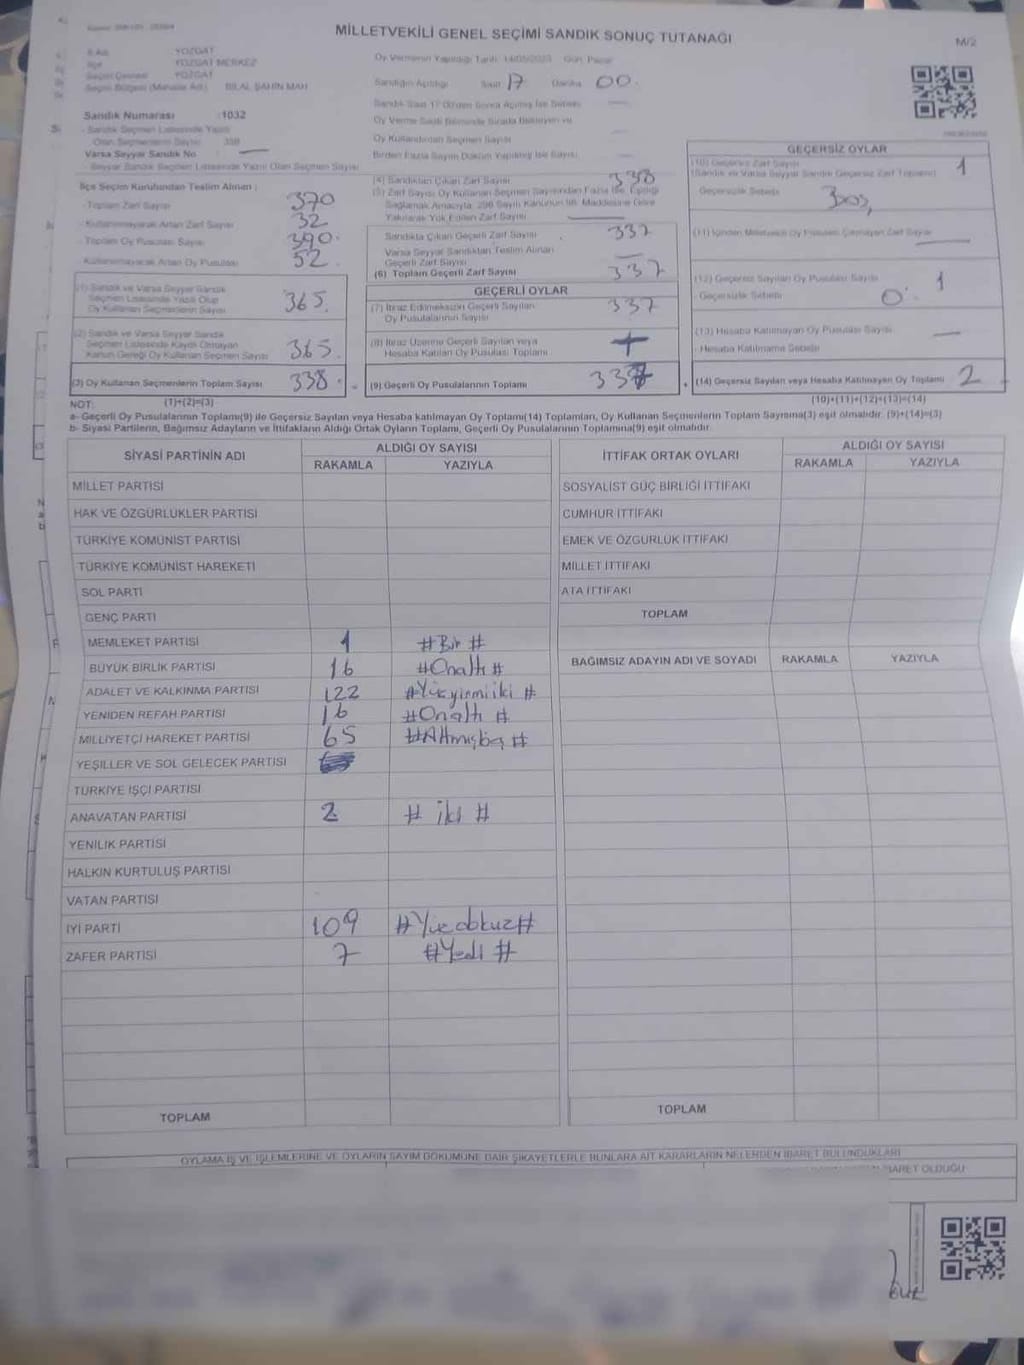 MİLLETVEKİLİ GENEL SEÇİMİ SANDIK SONUÇ TUTANAĞI
M/2
İl Adı : YOZGAT
İlçe : YOZGAT MERKEZ
Seçim Çevresi : YOZGAT
Seçim Bölgesi (Mahalle Adı) : BİLAL ŞAHİN MAH
Sandık Numarası :1032
Sandık Seçmen Listesinde Yazılı
Olan Seçmenlerin Sayısı
Varsa Seyyar Sandık No
Seyyar Sandık Seçmen Listesinde Yazılı Olan Seçmen Sayısı
Oy Vermenin Yapıldığı Tarih: 14/05/2023 Gün: Pazar
Sandığın Açıldığı Saat 17 Dakika 00
Sandık Saat 17.00'den Sonra Açılmış İse Sebebi
Oy Verme Saati Bitiminde Sırada Bekleyen ve
Oy Kullandırılan Seçmen Sayısı
Birden Fazla Sayım Döküm Yapılmış İse Sayısı
İlçe Seçim Kurulundan Teslim Alınan :
- Toplam Zarf Sayısı 370
- Kullanılmayarak Artan Zarf Sayısı 32
- Toplam Oy Pusulası Sayısı 390
- Kullanılmayarak Artan Oy Pusulası 52
(1) Sandık ve Varsa Seyyar Sandık
Seçmen Listesinde Yazılı Olup
Oy Kullanan Seçmenlerin Sayısı 365
(2) Sandık ve Varsa Seyyar Sandık
Seçmen Listesinde Kaydı Olmayan
Kanun Gereği Oy Kullanan Seçmen Sayısı 365
(3) Oy Kullanan Seçmenlerin Toplam Sayısı 338
(4) Sandıktan Çıkan Zarf Sayısı 338
(5) Zarf Sayısı Oy Kullanan Seçmen Sayısından Fazla İse, Eşitliği
Sağlamak Amacıyla, 298 Sayılı Kanunun 98. Maddesine Göre
Yakılarak Yok Edilen Zarf Sayısı
Sandıkta Çıkan Geçerli Zarf Sayısı 337
Varsa Seyyar Sandıktan Teslim Alınan
Geçerli Zarf Sayısı
(6) Toplam Geçerli Zarf Sayısı 337
GEÇERLİ OYLAR
(7) İtiraz Edilmeksizin Geçerli Sayılan
Oy Pusulalarının Sayısı 337
(8) İtiraz Üzerine Geçerli Sayılan veya
Hesaba Katılan Oy Pusulası Toplamı
(9) Geçerli Oy Pusulalarının Toplamı
GEÇERSİZ OYLAR
(10) Geçersiz Zarf Sayısı 1
(Sandık ve Varsa Seyyar Sandık Geçersiz Zarf Toplamı)
Geçersizlik Sebebi
(11) İçinden Milletvekili Oy Pusulası Çıkmayan Zarf Sayısı
(12) Geçersiz Sayılan Oy Pusulası Sayısı 1
Geçersizlik Sebebi
(13) Hesaba Katılmayan Oy Pusulası Sayısı
- Hesaba Katılmama Sebebi
(14) Geçersiz Sayılan veya Hesaba Katılmayan Oy Toplamı 2
NOT: (1)+(2)=(3)
(10)+(11)+(12)+(13)=(14)
a- Geçerli Oy Pusulalarının Toplamı(9) ile Geçersiz Sayılan veya Hesaba katılmayan Oy Toplamı(14) Toplamları, Oy Kullanan Seçmenlerin Toplam Sayısına(3) eşit olmalıdır. (9)+(14)=(3)
b- Siyasi Partilerin, Bağımsız Adayların ve İttifakların Aldığı Ortak Oyların Toplamı, Geçerli Oy Pusulalarının Toplamına(9) eşit olmalıdır.
SİYASİ PARTİNİN ADI
ALDIĞI OY SAYISI
RAKAMLA YAZIYLA
MİLLET PARTİSİ
HAK VE ÖZGÜRLÜKLER PARTİSİ
TÜRKİYE KOMÜNİST PARTİSİ
TÜRKİYE KOMÜNİST HAREKETİ
SOL PARTİ
GENÇ PARTİ
MEMLEKET PARTİSİ 1 #Bir #
BÜYÜK BİRLİK PARTİSİ 16 #Onaltı #
ADALET VE KALKINMA PARTİSİ 122 #Yüzyirmiiki #
YENİDEN REFAH PARTİSİ 16 #Onaltı #
MİLLİYETÇİ HAREKET PARTİSİ 65 #Altmışbeş #
YEŞİLLER VE SOL GELECEK PARTİSİ
TÜRKİYE İŞÇİ PARTİSİ
ANAVATAN PARTİSİ 2 # iki #
YENİLİK PARTİSİ
HALKIN KURTULUŞ PARTİSİ
VATAN PARTİSİ
İYİ PARTİ 109 #Yüzdokuz#
ZAFER PARTİSİ 7 #Yedi #
TOPLAM
İTTİFAK ORTAK OYLARI
ALDIĞI OY SAYISI
RAKAMLA YAZIYLA
SOSYALİST GÜÇ BİRLİĞİ İTTİFAKI
CUMHUR İTTİFAKI
EMEK VE ÖZGÜRLÜK İTTİFAKI
MİLLET İTTİFAKI
ATA İTTİFAKI
TOPLAM
BAĞIMSIZ ADAYIN ADI VE SOYADI RAKAMLA YAZIYLA
TOPLAM
OYLAMA İŞ VE İŞLEMLERİNE VE OYLARIN SAYIM DÖKÜMÜNE DAİR ŞİKAYETLERLE BUNLARA AİT KARARLARIN NELERDEN İBARET BULUNDUKLARI
İBARET OLDUĞU